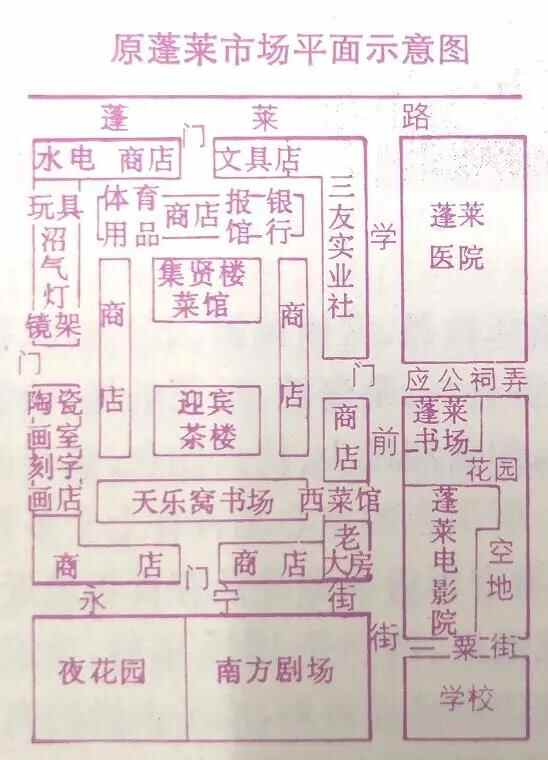 原蓬莱市场平面示意图
蓬莱路
门
水电 商店
文具店
玩具
沼气灯
镜架
体育用品
商店
报馆
银行
三友实业社
学前街
蓬莱医院
集贤楼菜馆
商店
商店
门
门
应公祠弄
陶瓷
画室
刻字
画店
迎宾茶楼
商店
蓬莱书场
花园
天乐窝书场
西菜馆
蓬莱电影院
空地
老大房
商店
门
商店
永宁街
一粟街
夜花园
南方剧场
学校